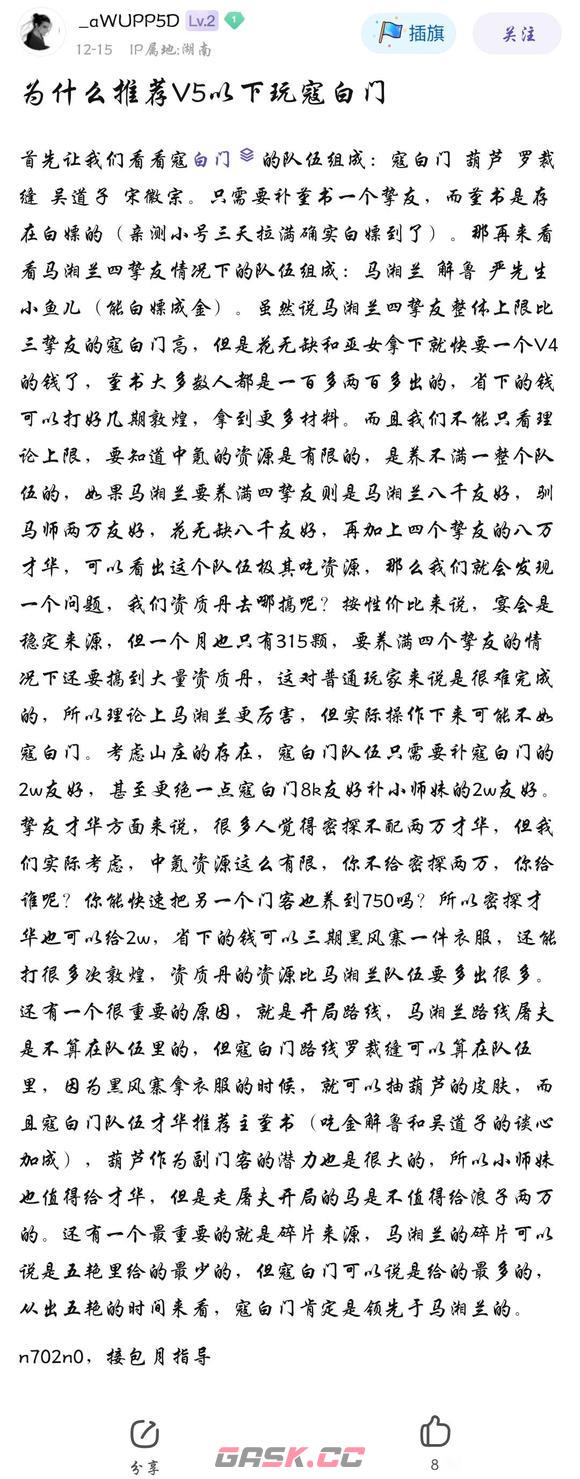 _aWUPP5D Lv.2 1
12-15 IP属地:湖南
插旗
关注
为什么推荐V5以下玩寇白门
首先让我们看看寇白门的队伍组成：寇白门 葫芦 罗裁
缝 吴道子 宋徽宗。只需要补董书一个挚友，而董书是存
在白嫖的（亲测小号三天拉满确实白嫖到了）。那再来看
看马湘兰四挚友情况下的队伍组成：马湘兰 解鲁 严先生
小鱼儿（能白嫖成金）。虽然说马湘兰四挚友整体上限比
三挚友的寇白门高，但是花无缺和巫女拿下就快要一个V4
的钱了，董书大多数人都是一百多两百多出的，省下的钱
可以打好几期敦煌，拿到更多材料。而且我们不能只看理
论上限，要知道中氪的资源是有限的，是养不满一整个队
伍的，如果马湘兰要养满四挚友则是马湘兰八千友好，驯
马师两万友好，花无缺八千友好，再加上四个挚友的八万
才华，可以看出这个队伍极其吃资源，那么我们就会发现
一个问题，我们资质丹去哪搞呢？按性价比来说，宴会是
稳定来源，但一个月也只有315颗，要养满四个挚友的情
况下还要搞到大量资质丹，这对普通玩家来说是很难完成
的，所以理论上马湘兰更厉害，但实际操作下来可能不如
寇白门。考虑山庄的存在，寇白门队伍只需要补寇白门的
2w友好，甚至更绝一点寇白门8k友好补小师妹的2w友好。
挚友才华方面来说，很多人觉得密探不配两万才华，但我
们实际考虑，中氪资源这么有限，你不给密探两万，你给
谁呢？你能快速把另一个门客也养到750吗？所以密探才
华也可以给2w，省下的钱可以三期黑风寨一件衣服，还能
打很多次敦煌，资质丹的资源比马湘兰队伍要多出很多。
还有一个很重要的原因，就是开局路线，马湘兰路线屠夫
是不算在队伍里的，但寇白门路线罗裁缝可以算在队伍
里，因为黑风寨拿衣服的时候，就可以抽葫芦的皮肤，而
且寇白门队伍才华推荐主董书（吃金解鲁和吴道子的谈心
加成），葫芦作为副门客的潜力也是很大的，所以小师妹
也值得给才华，但是走屠夫开局的马是不值得给浪子两万
的。还有一个最重要的就是碎片来源，马湘兰的碎片可以
说是五艳里给的最少的，但寇白门可以说是给的最多的，
从出五艳的时间来看，寇白门肯定是领先于马湘兰的。
n702n0，接包月指导
分享
8
GASK.CC